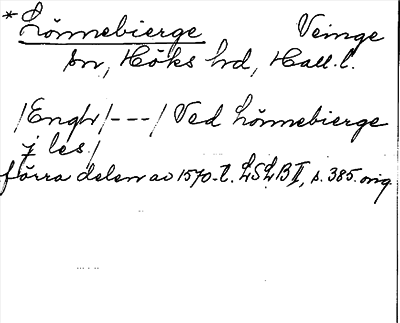 *Lönnebierge Veinge
sn, Höks hd, Hall. l.
/Engh/---/ Ved Lönnebierge
j les./
förra delen av 1570-t. LSLB II, s. 385. orig.